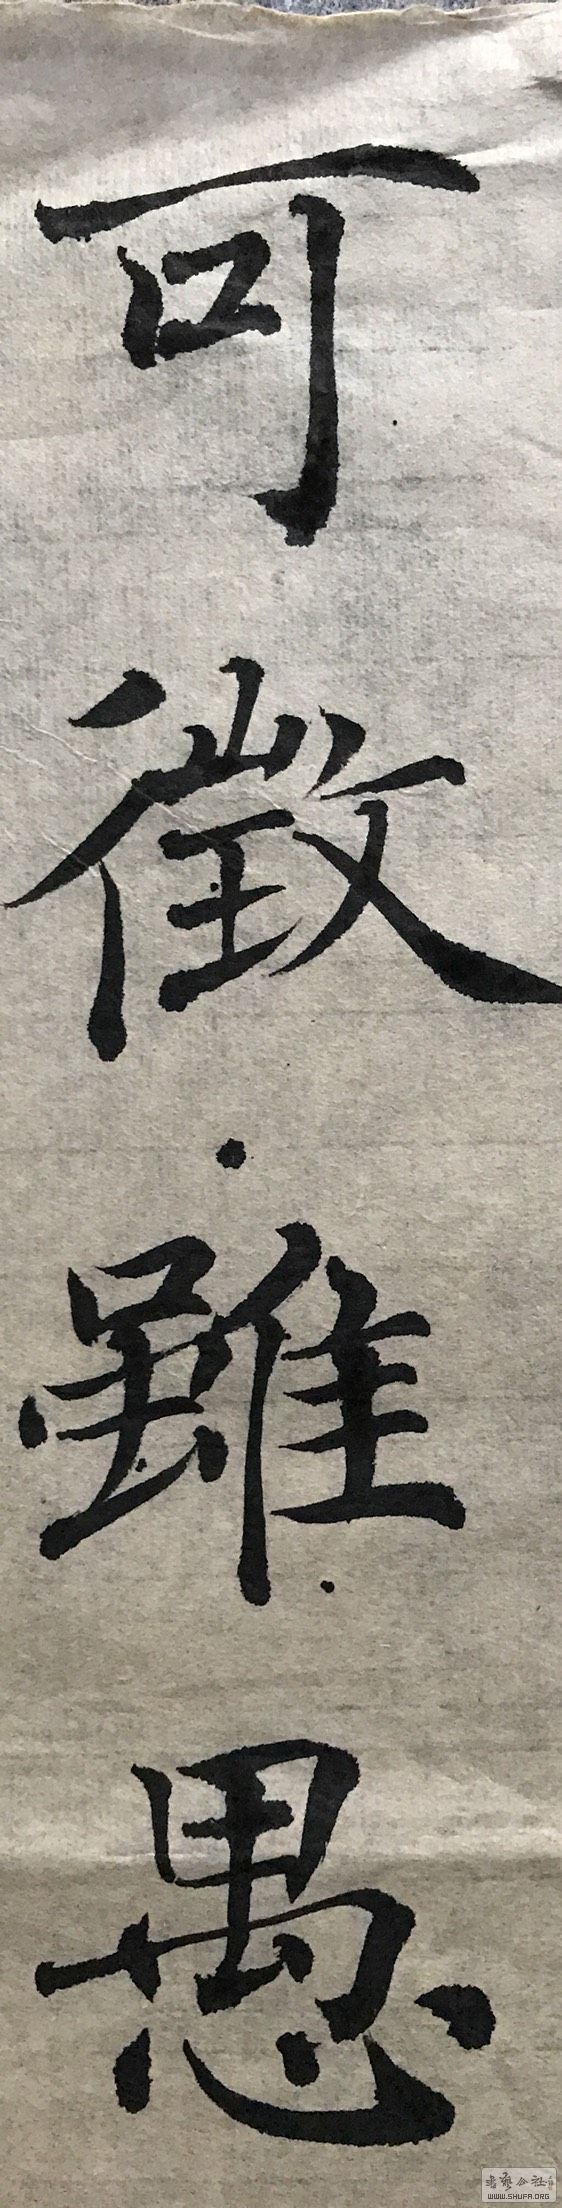 可徵雖愚
書藝公社
WWW.SHUFA.ORG